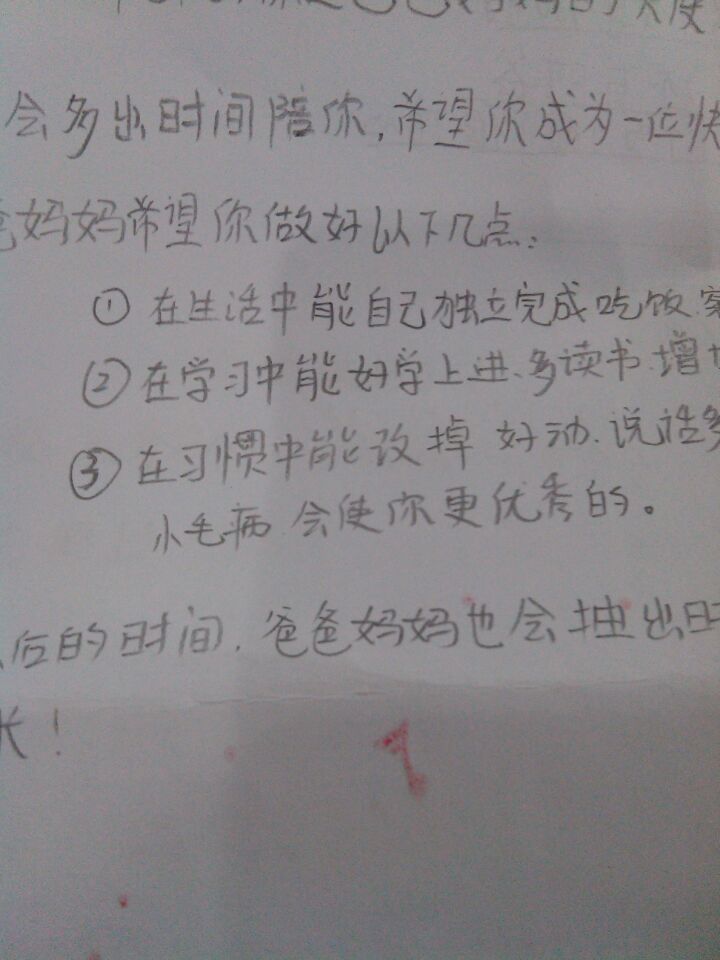 会多出时间陪你,希望你成为一位快
爸妈妈希望你做好以下几点:
① 在生活中能自己独立完成吃饭.穿
② 在学习中能好学上进、多读书.增
③ 在习惯中能改掉 好动.说话多
小毛病.会使你更优秀的。
后的时间.爸爸妈妈也会抽出时
长!